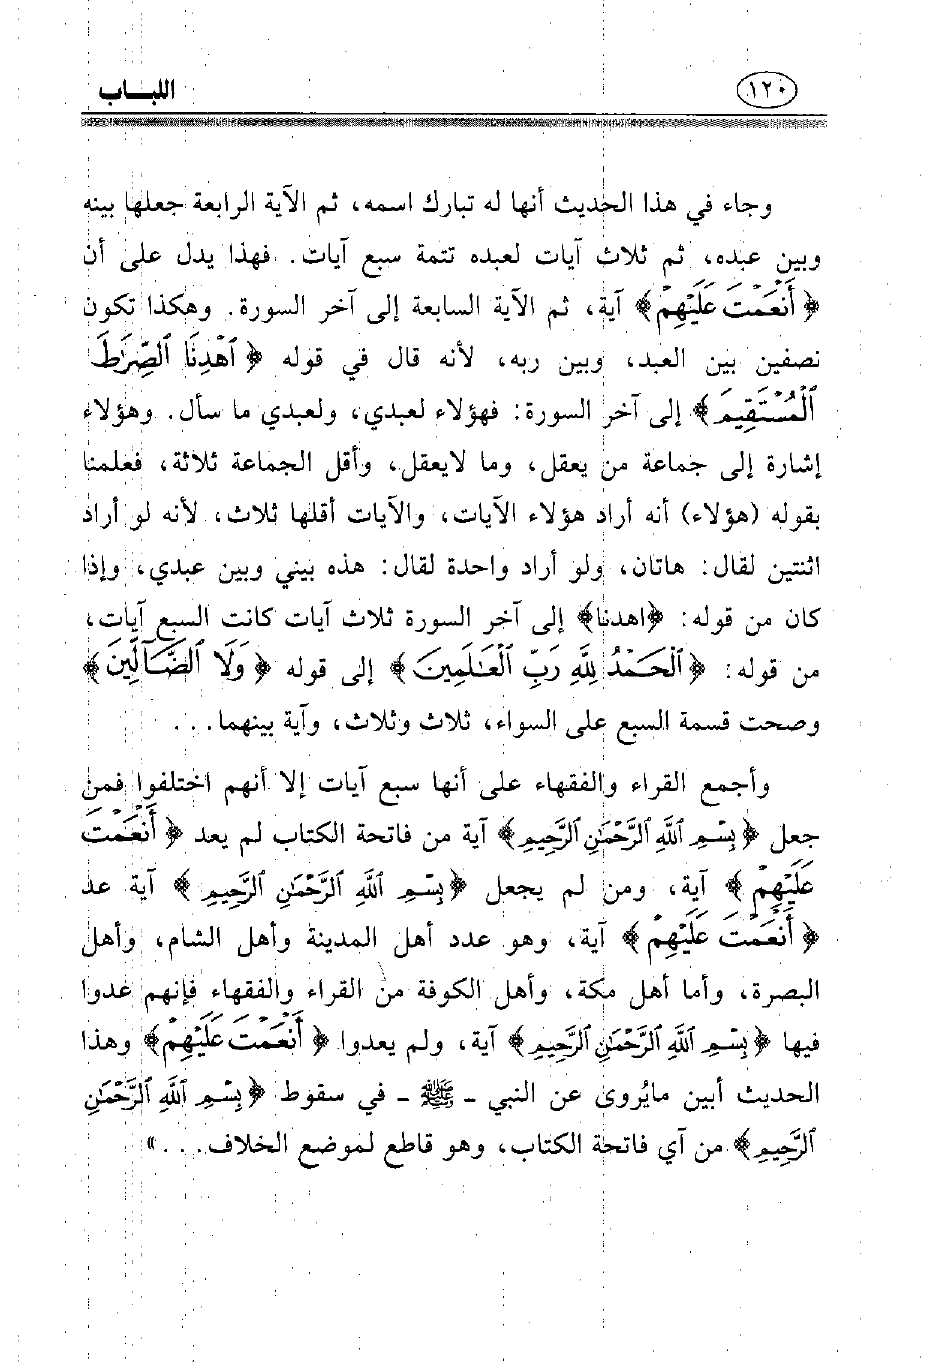 ١٢٠
اللبـــاب
وجاء في هذا الحديث أنها له تبارك اسمه، ثم الآية الرابعة جعلها بينه
وبين عبده، ثم ثلاث آيات لعبده تتمة سبع آيات. فهذا يدل على أن
﴿أَنْعَمْتَ عَلَيْهِمْ﴾ آية، ثم الآية السابعة إلى آخر السورة. وهكذا تكون
نصفين بين العبد، وبين ربه، لأنه قال في قوله ﴿ٱهْدِنَا ٱلصِّرَٰطَ
ٱلْمُسْتَقِيمَ﴾ إلى آخر السورة: فهؤلاء لعبدي، ولعبدي ما سأل. وهؤلاء
إشارة إلى جماعة من يعقل، وما لايعقل، وأقل الجماعة ثلاثة، فعلمنا
بقوله (هؤلاء) أنه أراد هؤلاء الآيات، والآيات أقلها ثلاث، لأنه لو أراد
اثنتين لقال: هاتان، ولو أراد واحدة لقال: هذه بيني وبين عبدي، وإذا
كان من قوله: ﴿اهدنا﴾ إلى آخر السورة ثلاث آيات كانت السبع آيات،
من قوله: ﴿ٱلْحَمْدُ لِلَّهِ رَبِّ ٱلْعَٰلَمِينَ﴾ إلى قوله ﴿وَلَا ٱلضَّآلِّينَ﴾
وصحت قسمة السبع على السواء، ثلاث وثلاث، وآية بينهما...
وأجمع القراء والفقهاء على أنها سبع آيات إلا أنهم اختلفوا فمن
جعل ﴿بِسْمِ ٱللَّهِ ٱلرَّحْمَٰنِ ٱلرَّحِيمِ﴾ آية من فاتحة الكتاب لم يعد ﴿أَنْعَمْتَ
عَلَيْهِمْ﴾ آية، ومن لم يجعل ﴿بِسْمِ ٱللَّهِ ٱلرَّحْمَٰنِ ٱلرَّحِيمِ﴾ آية عد
﴿أَنْعَمْتَ عَلَيْهِمْ﴾ آية، وهو عدد أهل المدينة وأهل الشام، وأهل
البصرة، وأما أهل مكة، وأهل الكوفة من القراء والفقهاء فإنهم عدوا
فيها ﴿بِسْمِ ٱللَّهِ ٱلرَّحْمَٰنِ ٱلرَّحِيمِ﴾ آية، ولم يعدوا ﴿أَنْعَمْتَ عَلَيْهِمْ﴾ وهذا
الحديث أبين مايُروى عن النبي - ﷺ - في سقوط ﴿بِسْمِ ٱللَّهِ ٱلرَّحْمَٰنِ
ٱلرَّحِيمِ﴾ من آي فاتحة الكتاب، وهو قاطع لموضع الخلاف...»